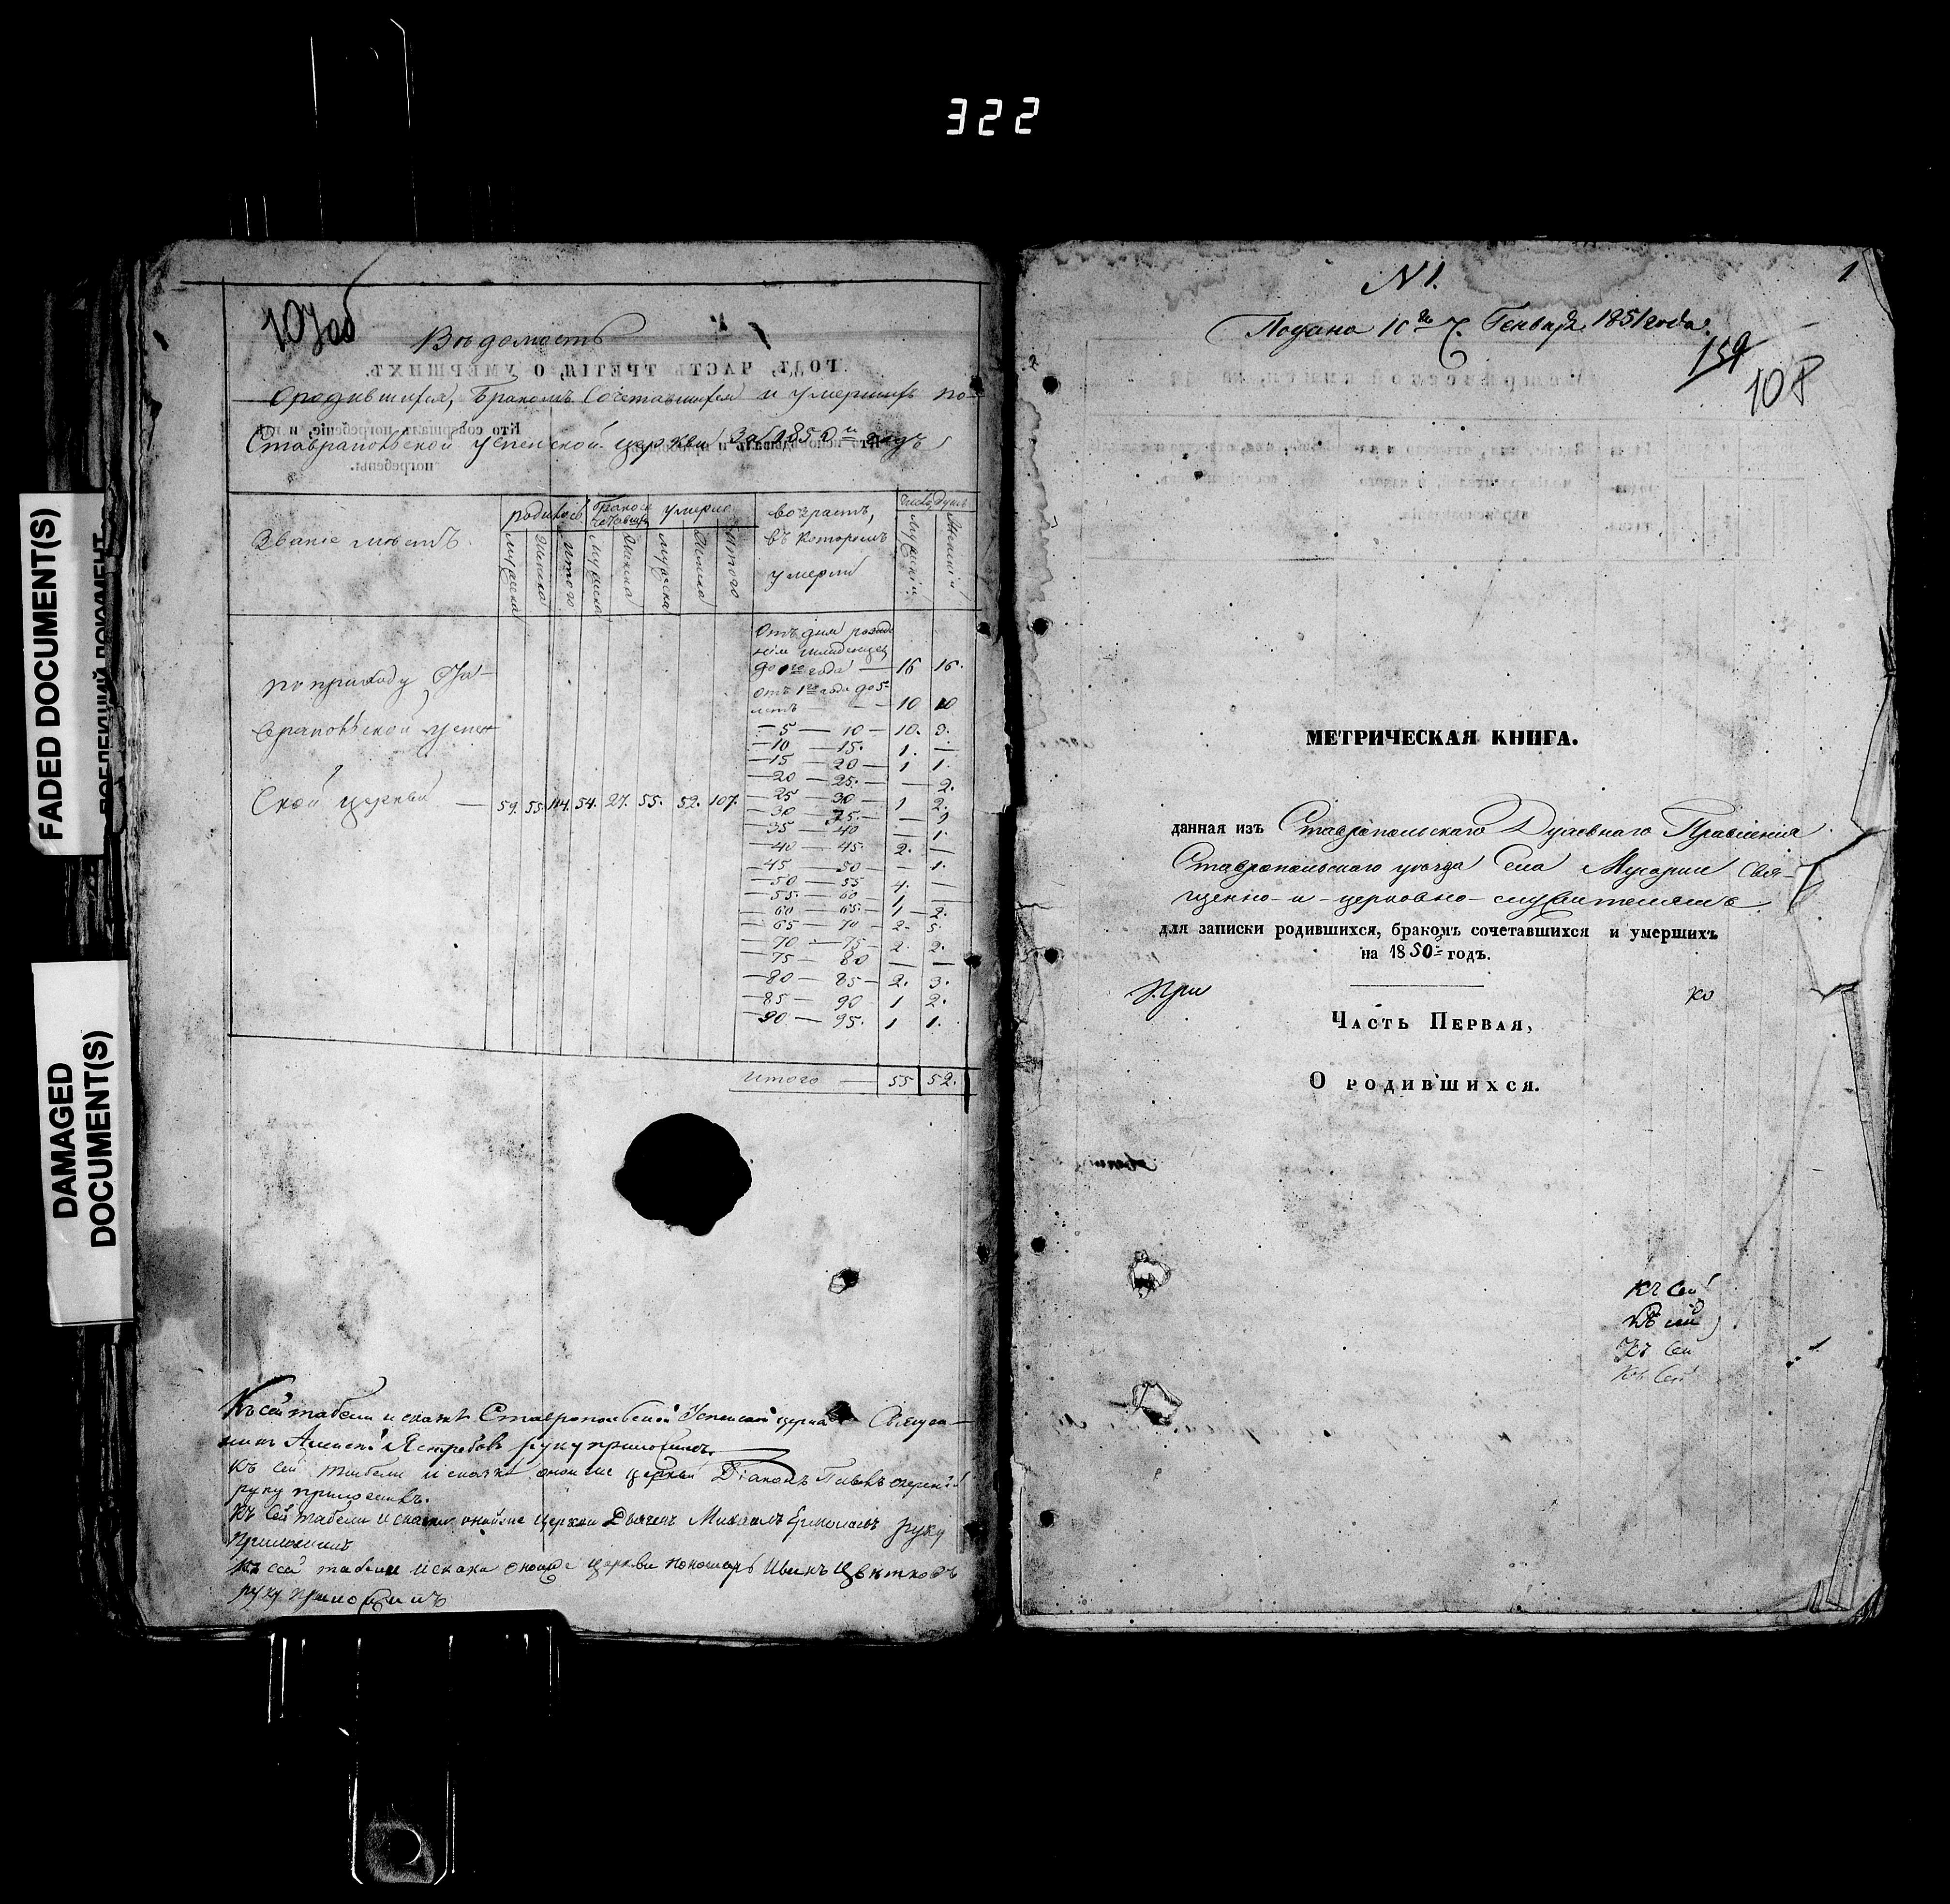 322
FADED DOCUMENT(S)
DAMAGED
DOCUMENT(S)
107об
Вѣдомость
ГОДЪ, ЧАСТЬ ТРЕТІЯ, О УМЕРШИХЪ.
О родившихся, бракомъ сочетавшихся и умершихъ по
Ставропольской Успенской церкви За 1850й годъ
Званіе мѣстъ.
родилось
бракосочетавш
умерло
возрастъ,
въ которомъ
умерли
мужеска
женска
итого
мужеска
женска
мужеска
женска
итого
Число душъ
мужескій
женскій
по приходу Ста-
вропольской Успен-
ской церкви — 59. 55. 114. 54. 27. 55. 52. 107.
Отъ дня рожде
нія младенцев
до 1го года — 16 16.
отъ 1го года до 5
лѣтъ — 10 10
— 5 — 10 — 10. 3.
— 10 — 15. 1. —
— 15 — 20 — 1 1.
— 20 — 25. — — 2.
— 25 — 30 — 1 2.
— 30 — 35. — — 1
— 35 — 40 — 1.
— 40 — 45. 2. —
— 45 — 50 — — 1.
— 50 — 55 4. —
— 55. — 60 1 —
— 60 — 65. — 1 — 2.
— 65 — 70 — 2. 5.
— 70 — 75 — 2. 2.
— 75 — 80 — —
— 80 — 85 — 2. 3.
— 85 — 90 1 2.
— 90 — 95. 1 1.
итого — 55 52.
Къ сей табели и сказкѣ Ставропольской Успенской церкви Священ
никъ Алексѣй Ястребовъ руку приложилъ.
Къ сей табели и сказкѣ оной же церкви Діаконъ Павелъ
руку приложилъ.
Къ сей табели и сказки оной же церкви Дьячекъ Михаилъ руку
приложилъ
Къ сей табели и сказки оной же церкви пономарь Иванъ Цвѣтковъ
руку приложилъ
N 1.
1
Подана 10го Генваря 1851 года.
159
108
МЕТРИЧЕСКАЯ КНИГА.
данная изъ Ставропольскаго Духовнаго Правленія
Ставропольскаго уѣзда Села Свя-
щенно-и-церковно-служителямъ
для записки родившихся, бракомъ сочетавшихся и умершихъ
на 1850й годъ.
При ко
Часть Первая,
О родившихся.
Къ сей
Къ сей
Къ сей
Къ сей